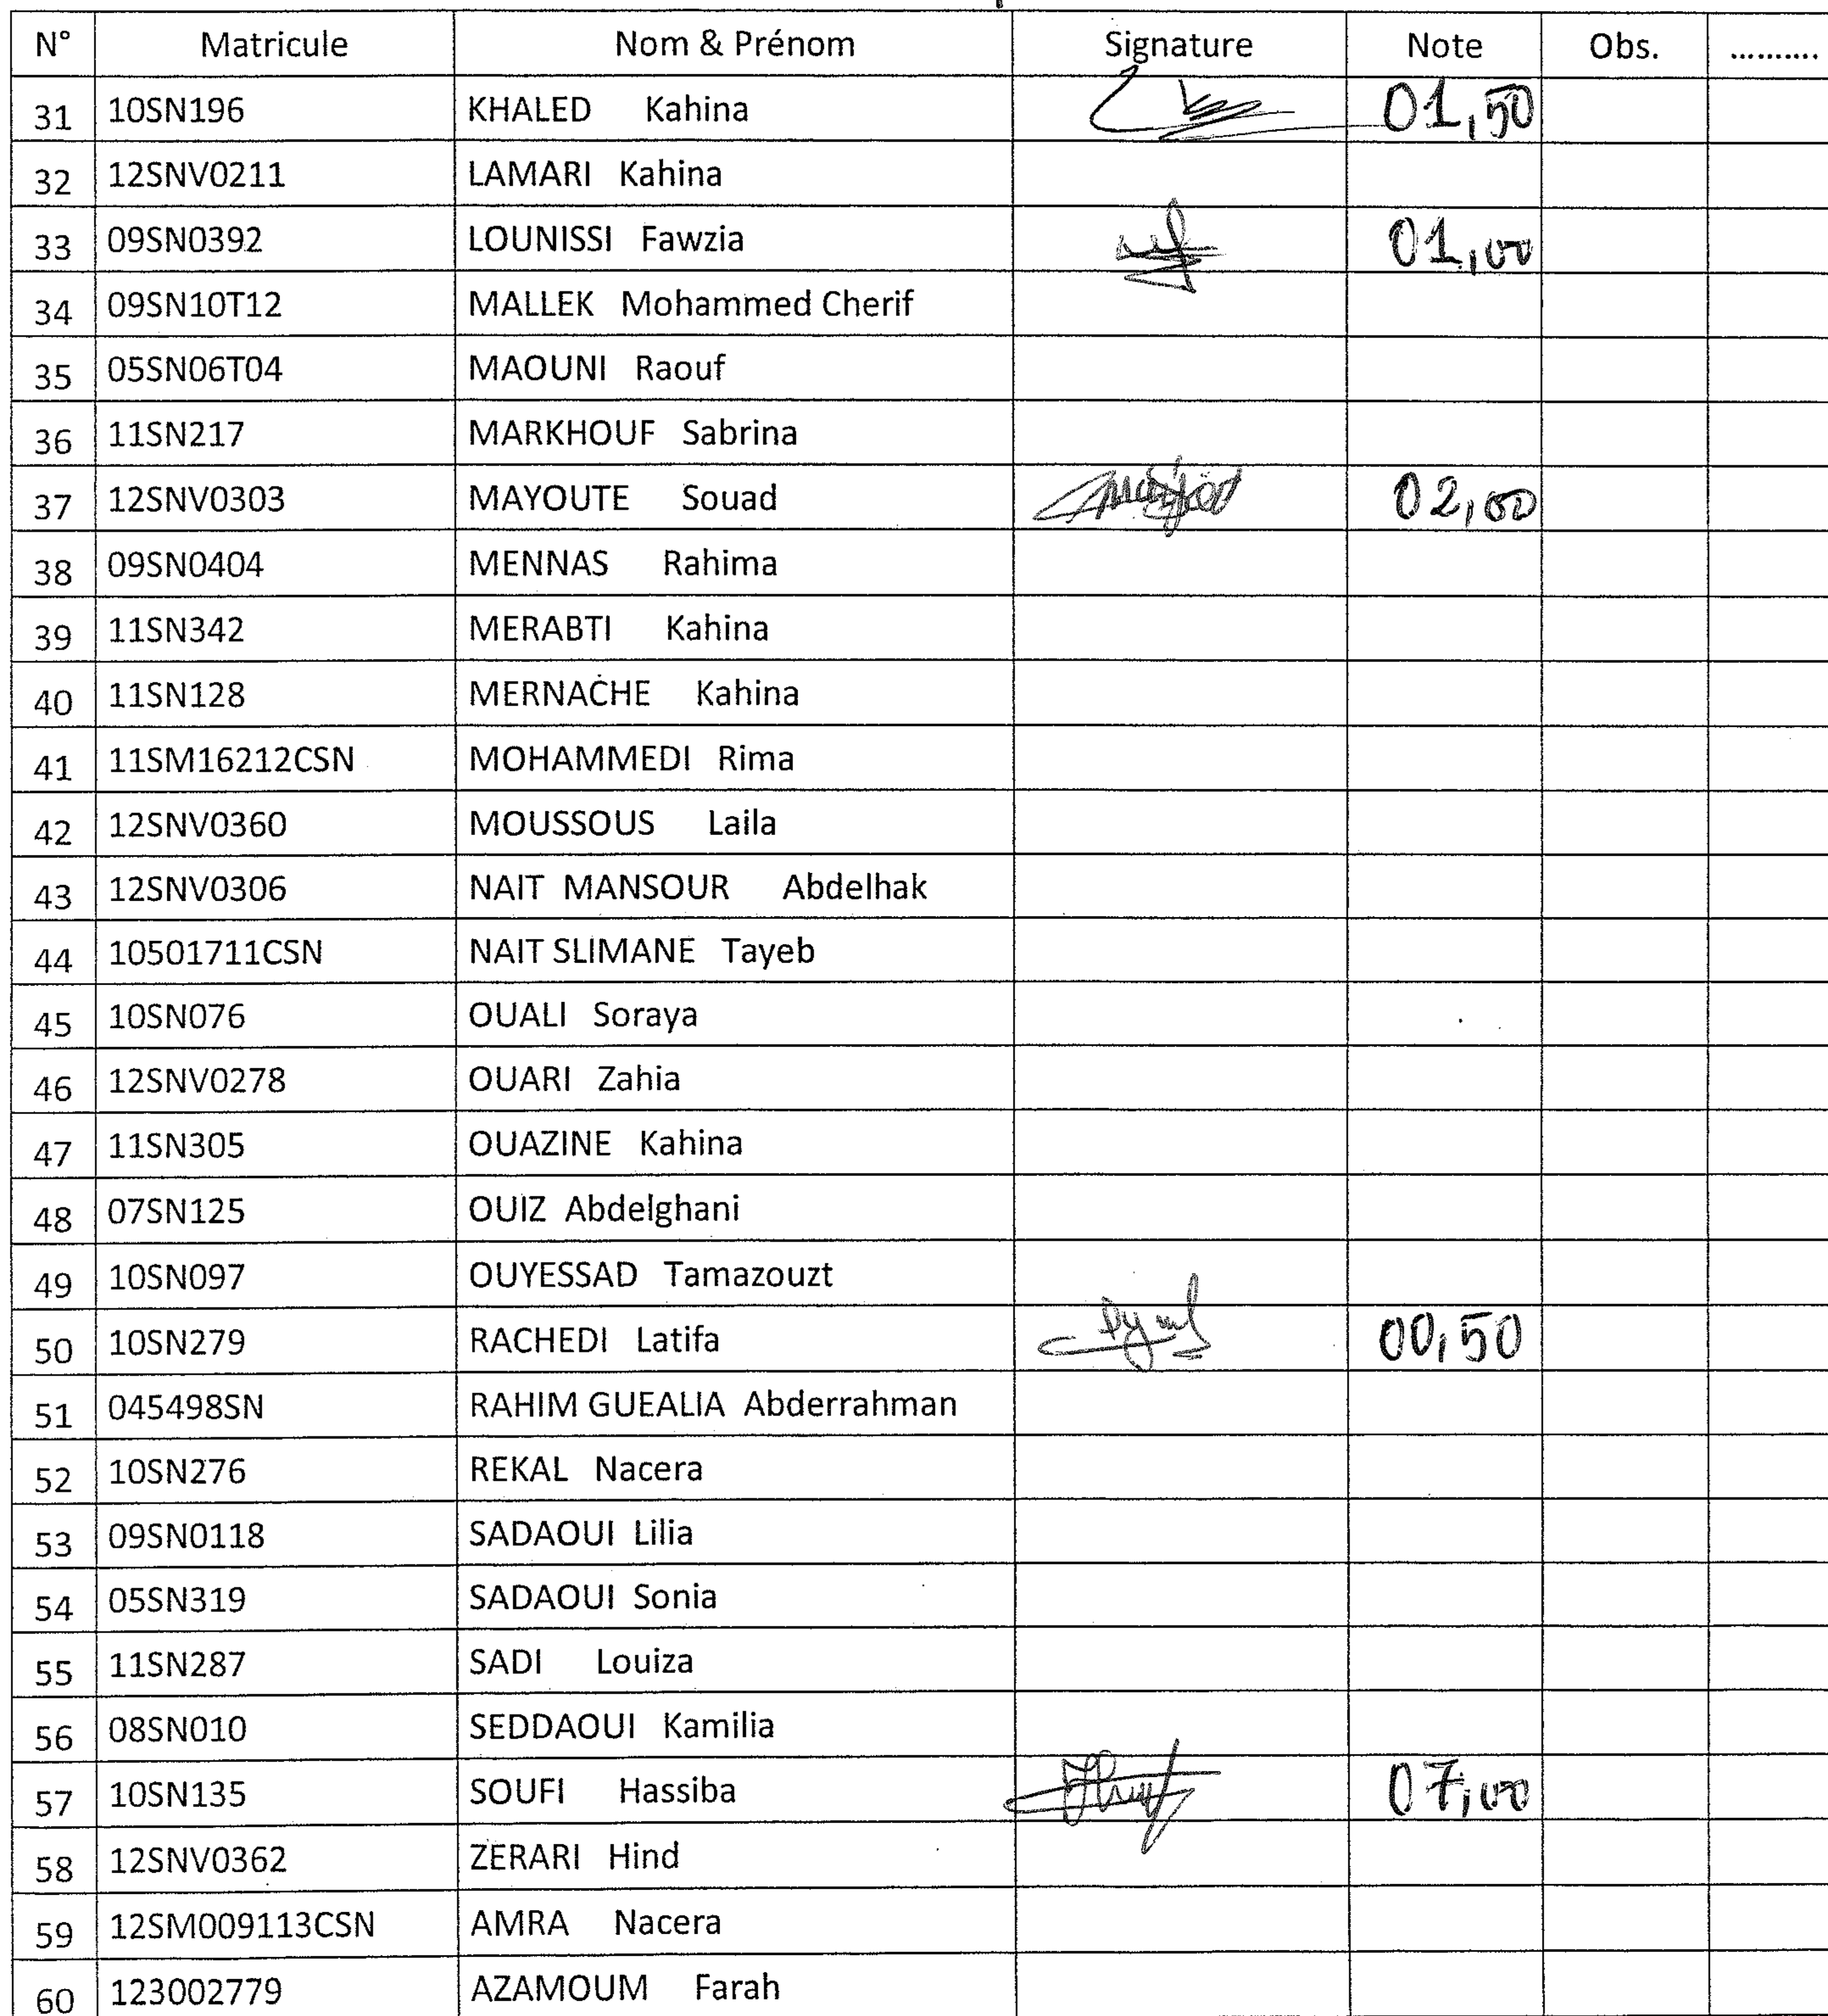 N° Matricule Nom & Prénom Signature Note Obs. ..........
31 10SN196 KHALED Kahina 01,50
32 12SNV0211 LAMARI Kahina
33 09SN0392 LOUNISSI Fawzia 01,00
34 09SN10T12 MALLEK Mohammed Cherif
35 05SN06T04 MAOUNI Raouf
36 11SN217 MARKHOUF Sabrina
37 12SNV0303 MAYOUTE Souad 02,00
38 09SN0404 MENNAS Rahima
39 11SN342 MERABTI Kahina
40 11SN128 MERNACHE Kahina
41 11SM16212CSN MOHAMMEDI Rima
42 12SNV0360 MOUSSOUS Laila
43 12SNV0306 NAIT MANSOUR Abdelhak
44 10501711CSN NAIT SLIMANE Tayeb
45 10SN076 OUALI Soraya
46 12SNV0278 OUARI Zahia
47 11SN305 OUAZINE Kahina
48 07SN125 OUIZ Abdelghani
49 10SN097 OUYESSAD Tamazouzt
50 10SN279 RACHEDI Latifa 00,50
51 045498SN RAHIM GUEALIA Abderrahman
52 10SN276 REKAL Nacera
53 09SN0118 SADAOUI Lilia
54 05SN319 SADAOUI Sonia
55 11SN287 SADI Louiza
56 08SN010 SEDDAOUI Kamilia
57 10SN135 SOUFI Hassiba 07,00
58 12SNV0362 ZERARI Hind
59 12SM009113CSN AMRA Nacera
60 123002779 AZAMOUM Farah